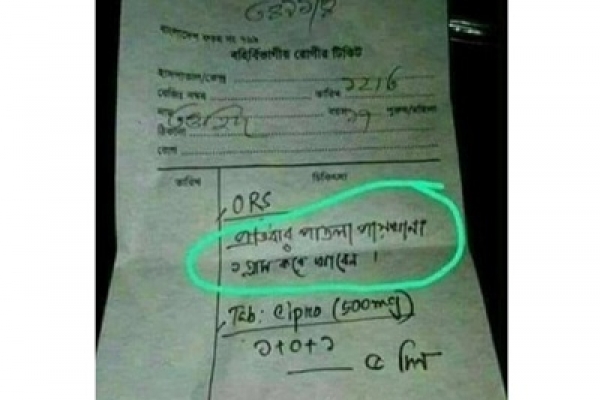 বাংলাদেশ ফরম নং ৭৬৯
বহির্বিভাগীয় রোগীর টিকিট
হাসপাতাল/কেন্দ্র
রেজিঃ নম্বর তারিখ ১২/৬
নাম বয়স ১৭ পুরুষ/মহিলা
ঠিকানা
রোগ
তারিখ চিকিৎসা
ORS
প্রতিবার পাতলা পায়খানা
১ গ্লাস করে খাবেন ।
Tab: Cipro (500mg)
১+০+১
৫ দিন